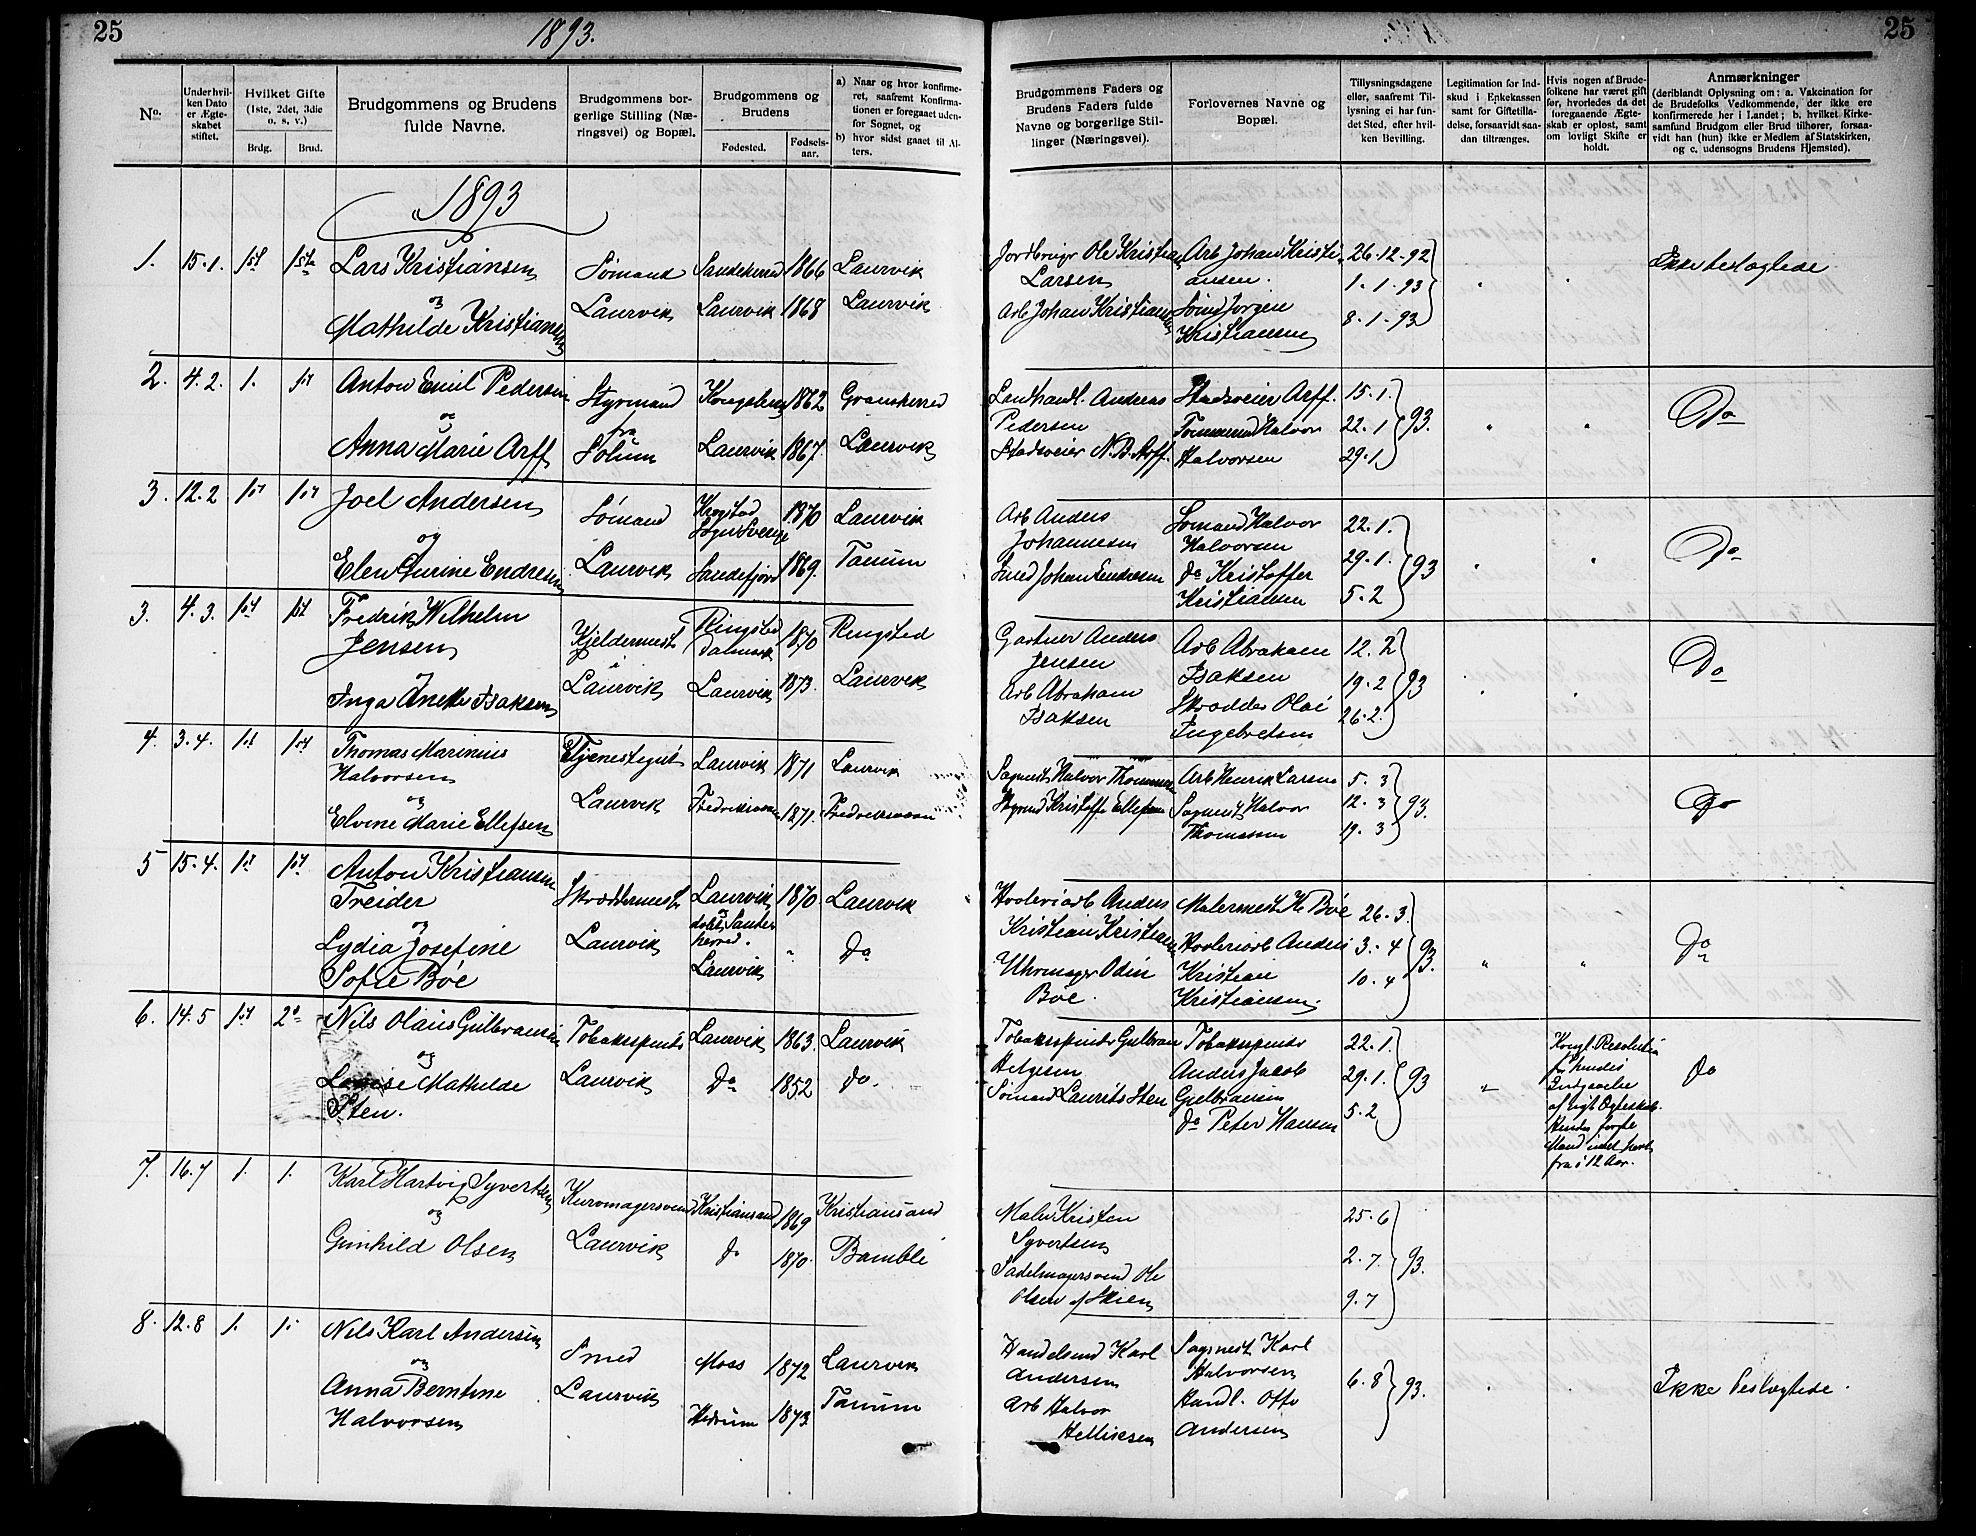 25
1893.
No.
Under hvil-
ken Dato
er Ægte-
skabet
stiftet.
Hvilket Gifte
(1ste, 2det, 3die
o. s. v.)
Brdg.
Brud.
Brudgommens og Brudens
fulde Navne.
Brudgommens bor-
gerlige Stilling (Næ-
ringsvei) og Bopæl.
Brudgommens og
Brudens
Fødested.
Fødsels-
aar.
a) Naar og hvor konfirme-
ret, saafremt Konfirma-
tionen er foregaaet uden-
for Sognet, og
b) hvor sidst gaaet til Al-
ters.
25
Brudgommens Faders og
Brudens Faders fulde
Navne og borgerlige Stil-
linger (Næringsvei).
Forlovernes Navne og
Bopæl.
Tillysningsdagene
eller, saafremt Til-
lysning ei har fun-
det Sted, efter hvil-
ken Bevilling.
Legitimation for Ind-
skud i Enkekassen
samt for Giftetilla-
delse, forsaavidt saa-
dan tiltrænges.
Hvis nogen af Brude-
folkene har været gift
før, hvorledes da det
foregaaende Ægte-
skab er opløst, samt
om lovligt Skifte er
holdt.
Anmærkninger
(deriblandt Oplysning om: a. Vakcination for
de Brudefolks Vedkommende, der ikke ere
konfirmerede her i Landet; b. hvilket Kirke-
samfund Brudgom eller Brud tilhører, forsaa-
vidt han (hun) ikke er Medlem af Statskirken,
og c. udensogns Brudens Hjemsted).
1893
1. 15.1. 1st 1ste Lars Kristiansen
og
Mathilde Kristiansen
Sømand
Laurvik
Sandeherred 1866 Laurvik
Laurvik 1868 Laurvik
Jordbrugr Ole Kristian
Larsen
Arb Johan Kristiansen
Arb Johan Kristi
ansen.
Sømd Jørgen
Kristiansen
26-12-92
1-1-93
8-1-93
Ikke beslægtede
2. 4.2. 1. 1st Anton Emil Pedersen
og
Anna Marie Arff
Styrmand
fra
Solum
Kongsberg 1862 Gransherred
Laurvik 1867 Laurvik
Landhandl. Andreas
Pedersen
Stadsveier N.B. Arff.
Stadsveier Arff.
Tømmermd Halvor
Halvorsen
15.1.
22.1
29.1
93.
Do
3. 12.2 1st 1st Joel Andersen
og
Elen Gurine Endresen
Sømand
Laurvik
Krogstad
Sogn Sverige
1870 Laurvik
Sandefjord 1869. Tanum
Arb Anders
Johannesen
Smed Johan Endresen
Sømand Halvor
Halvorsen
do Kristoffer
Kristiansen
22.1.
29.1.
5.2
93
Do
3. 4.3. 1st 1st Fredrik Wilhelm
Jensen
og
Inga Anette Isaksen
Kjeldermestr
i
Laurvik
Ringsted
Danmark
1870 Ringsted
Laurvik 1873. Laurvik
Gartner Anders
Jensen
Arb Abraham
Isaksen
Arb Abraham
Isaksen
Skrædder Olai
Ingebretsen
12.2
19.2
26.2.
93
Do
4. 3.4. 1st 1st Thomas Marinius
Halvorsen
og
Elvine Marie Ellefsen
Tjenestegut
Laurvik
Laurvik 1871 Laurvik
Fredriksværn 1871. Fredriksværn
Sagmestr Halvor Thommesen
Styrmd Kristoffer Ellefsen
Arb Henrik Larsen
Sagmest Halvor
Thomassen
5.3
12.3
19.3
93.
Do
5 15.4. 1st 1st Anton Kristiansen
Treider
og
Lydia Josefine
Sofie Bøe
Skræddermestr
Laurvik
Laurvik
døbt Sande
herred.
Laurvik
1870 Laurvik
" Do
Anders
Kristian Kristiansen
Uhrmager Odin
Bøe.
Malermest H Bøe
Anders
Kristian
Kristiansen.
26.3.
3.4
10.4
93.
Do
6. 14.5 1st 2d Nils Olaus Gulbransen
og
Lovise Mathilde
Sten.
Tobakspindr
Laurvik
Laurvik 1863. Laurvik
Do 1852 do.
Tobakspindr Gulbran
Helgesen
Sømand Laurits Sten
Tobakspindr
Anders Jacob
Gulbransen
do Peter Hansen
22.1.
29.1.
5.2
93
Kongl. Resolution
for hendes
Indgaaelse
af nyt Ægteskab.
Hendes forste
Mand
fra i 12 Aar.
Do
7. 16.7 1. 1. Karl Hartvig Syvertsen
og
Gunhild Olsen
Laurvik
Kristiansand 1869 Kristiansand
do 1870. Bamble
Maler Kristen
Syvertsen
Sadelmagersvend Ole
Olsen af Skien
25.6
2.7.
9.7
93.
8. 12.8 1. 1. Nils Karl Andersen
og
Anna Berntine
Halvorsen
Smed
Laurvik
Moss 1872 Laurvik
Hedrum 1873 Tanum
Handelsmd Karl
Andersen
Arb Halvor
Helliksen
Sagmest Karl
Halvorsen
Handl. Otto
Andersen
6.8
93.
Ikke beslægtede.